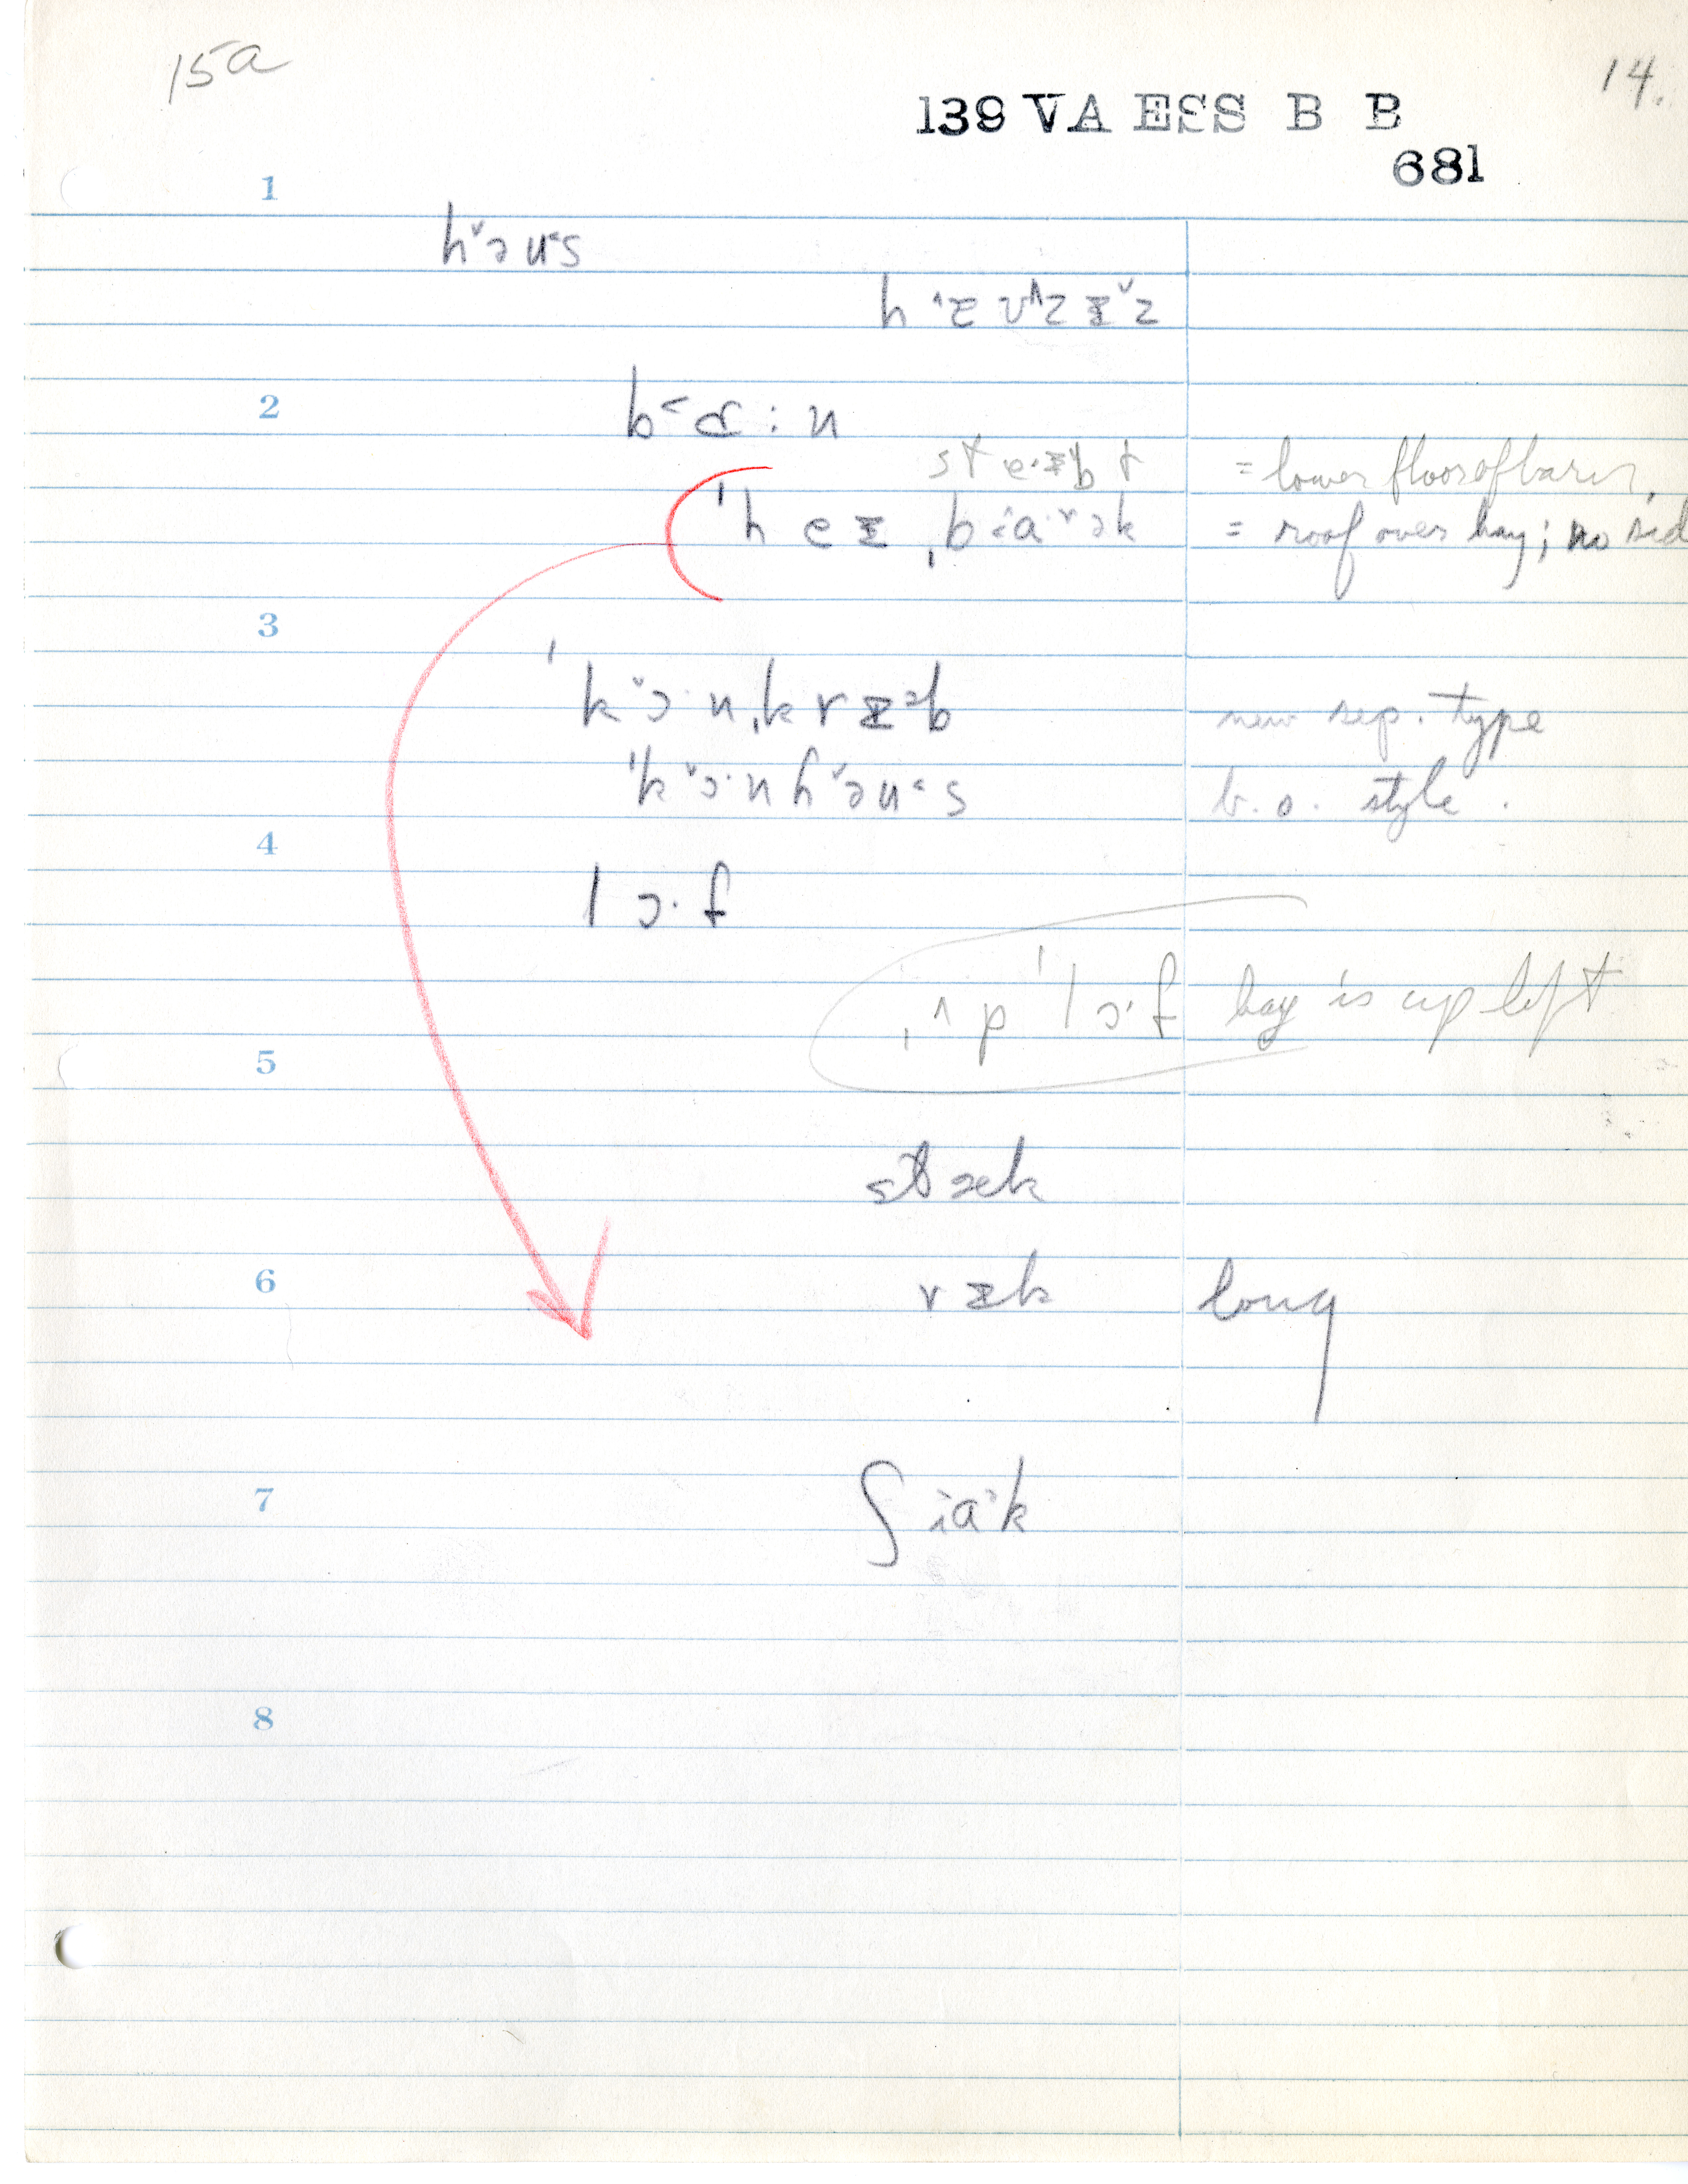 15a
14.
139 VA ESS B B
681
1
h˅əu˂s
2
b˂ɑ : n
= lower floor of barn,
= roof over hay; no sid
3
ˈk˅ɔ·nˌkrɪ˃b new sep. type
ˈk˅ɔ·nh˅əu˂s b.o. style.
4
lɔ·f
ˌʌpˈlɔ·f hay is up left
5
stæk
6
rɪk long
7
8